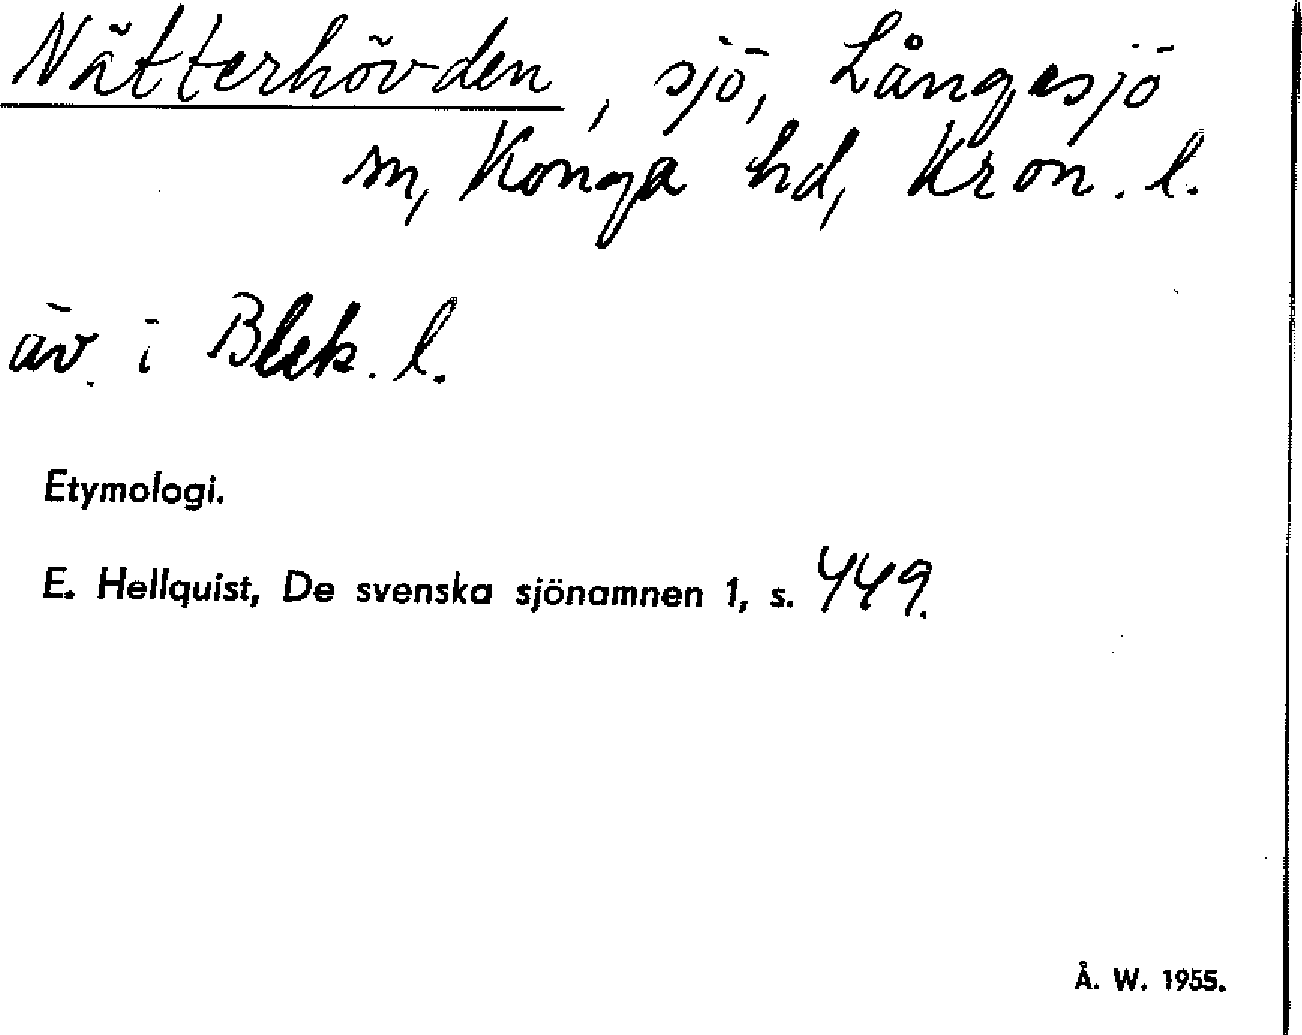 Nätterhövden, sjö, Långasjö
sn, Konga hd, Kron. l.
äv. i Blek. l.
Etymologi.
E. Hellquist, De svenska sjönamnen 1, s. 449.
Å. W. 1955.